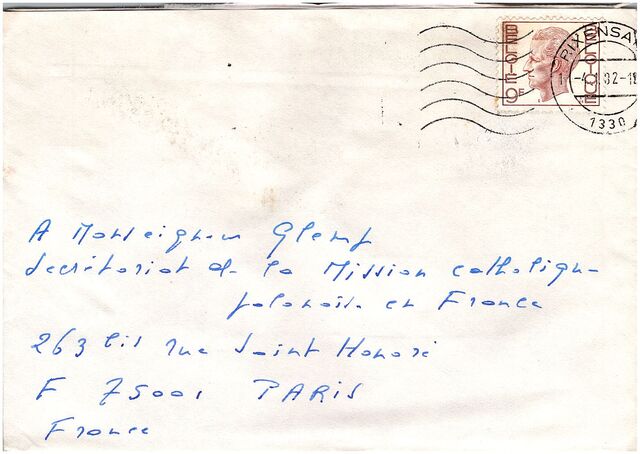 BELGIE BELGIQUE
9F
RIXENSA
1 -4 82-18
1330
A Monseigneur Glemp
Secrétariat de la Mission catholique
polonaise en France
263 bis rue Saint Honoré
F 75001 PARIS
France